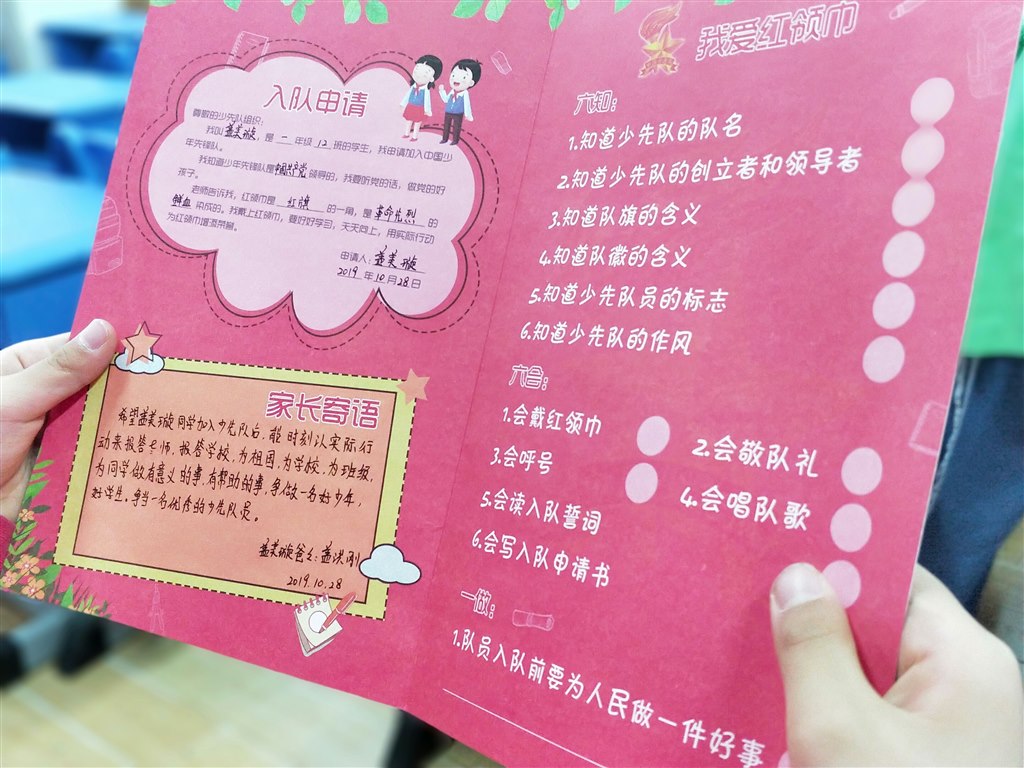 入队申请
尊敬的少先队组织：
我叫盖美璇，是 二 年级 12 班的学生，我申请加入中国少
年先锋队。
我知道少年先锋队是中国共产党领导的，我要听党的话，做党的好
孩子。
老师告诉我，红领巾是 红旗 的一角，是 革命先烈 的
鲜血 染成的。我戴上红领巾，要好好学习，天天向上，用实际行动
为红领巾增添荣誉。
申请人：盖美璇
2019 年 10 月 28 日
家长寄语
希望盖美璇同学加入少先队后，能时刻以实际行
动来报答老师，报答学校，为祖国，为学校，为班级，
为同学做有意义的事，有帮助的事，争做一名好少年，
好学生。争当一名优秀的少先队员。
盖美璇爸爸：盖洪刚
2019.10.28
我爱红领巾
六知：
1.知道少先队的队名
2.知道少先队的创立者和领导者
3.知道队旗的含义
4.知道队徽的含义
5.知道少先队员的标志
6.知道少先队的作风
六会：
1.会戴红领巾
2.会敬队礼
3.会呼号
4.会唱队歌
5.会读入队誓词
6.会写入队申请书
一做：
1.队员入队前要为人民做一件好事